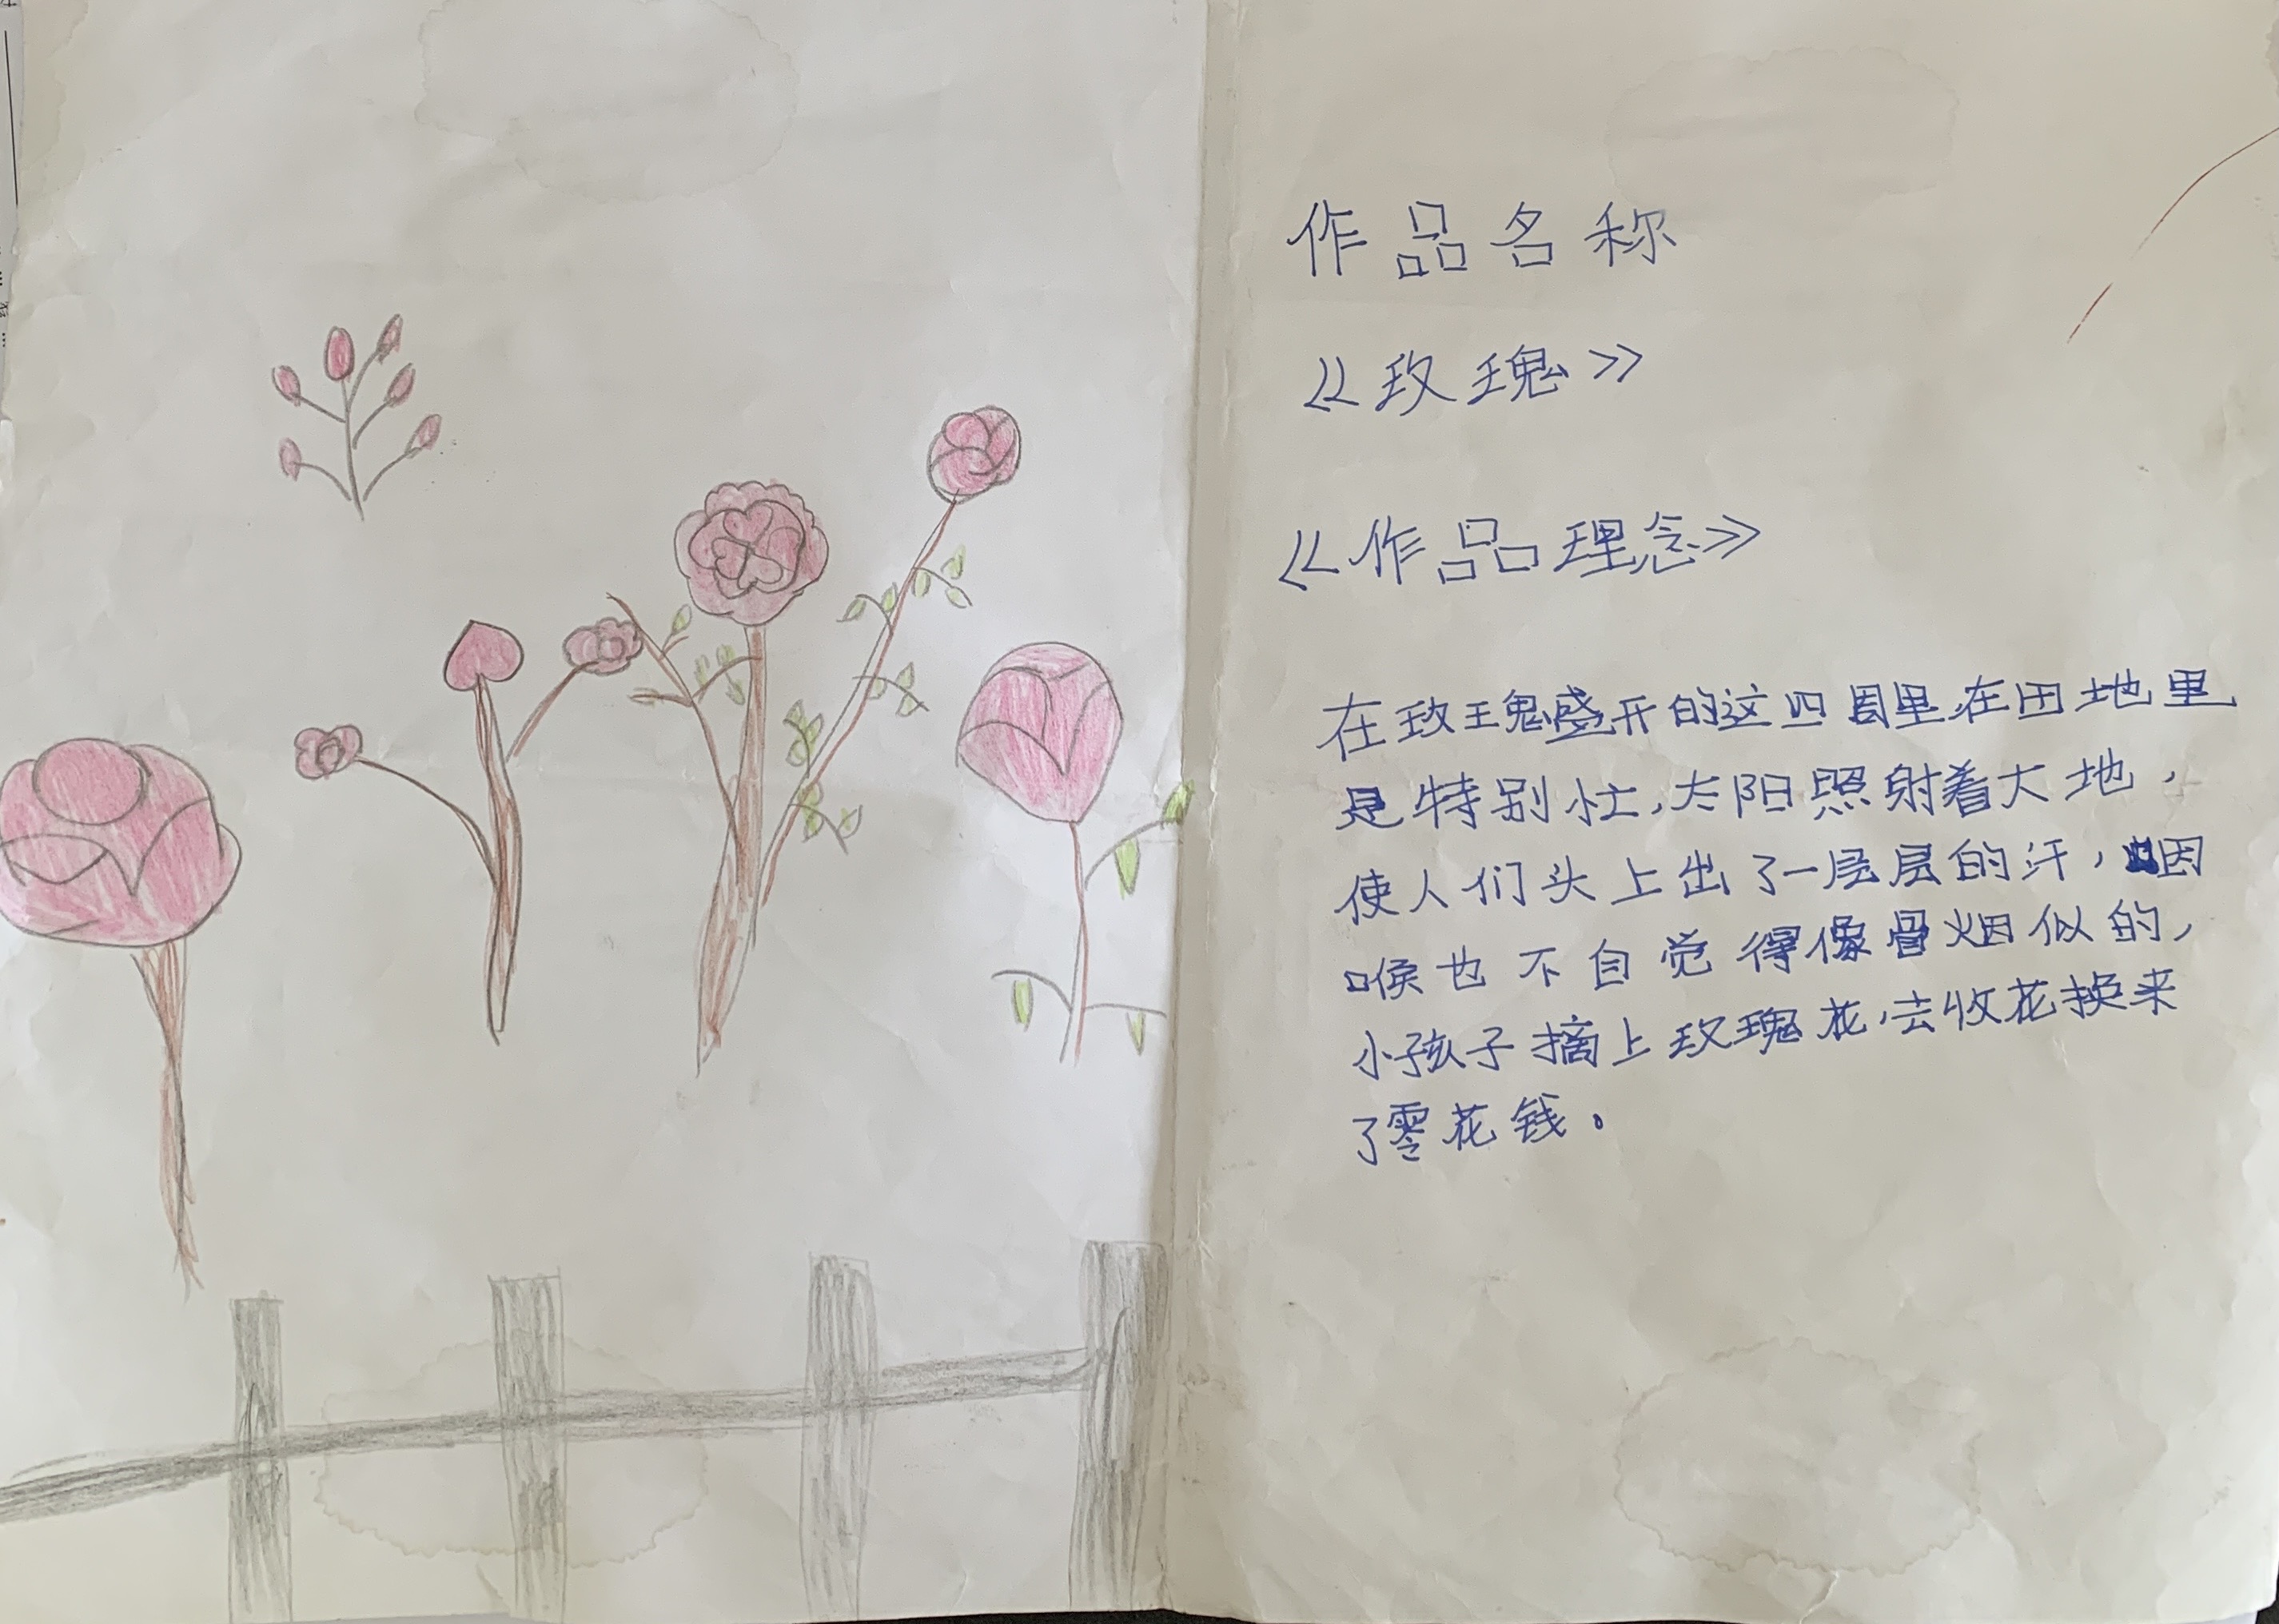 作品名称
《玫瑰》
《作品理念》
在玫瑰盛开的这四周里,在田地里
是特别忙,太阳照射着大地,
使人们头上出了一层层的汗,因
喉也不自觉得像冒烟似的,
小孩子摘上玫瑰花,去收花换来
了零花钱。